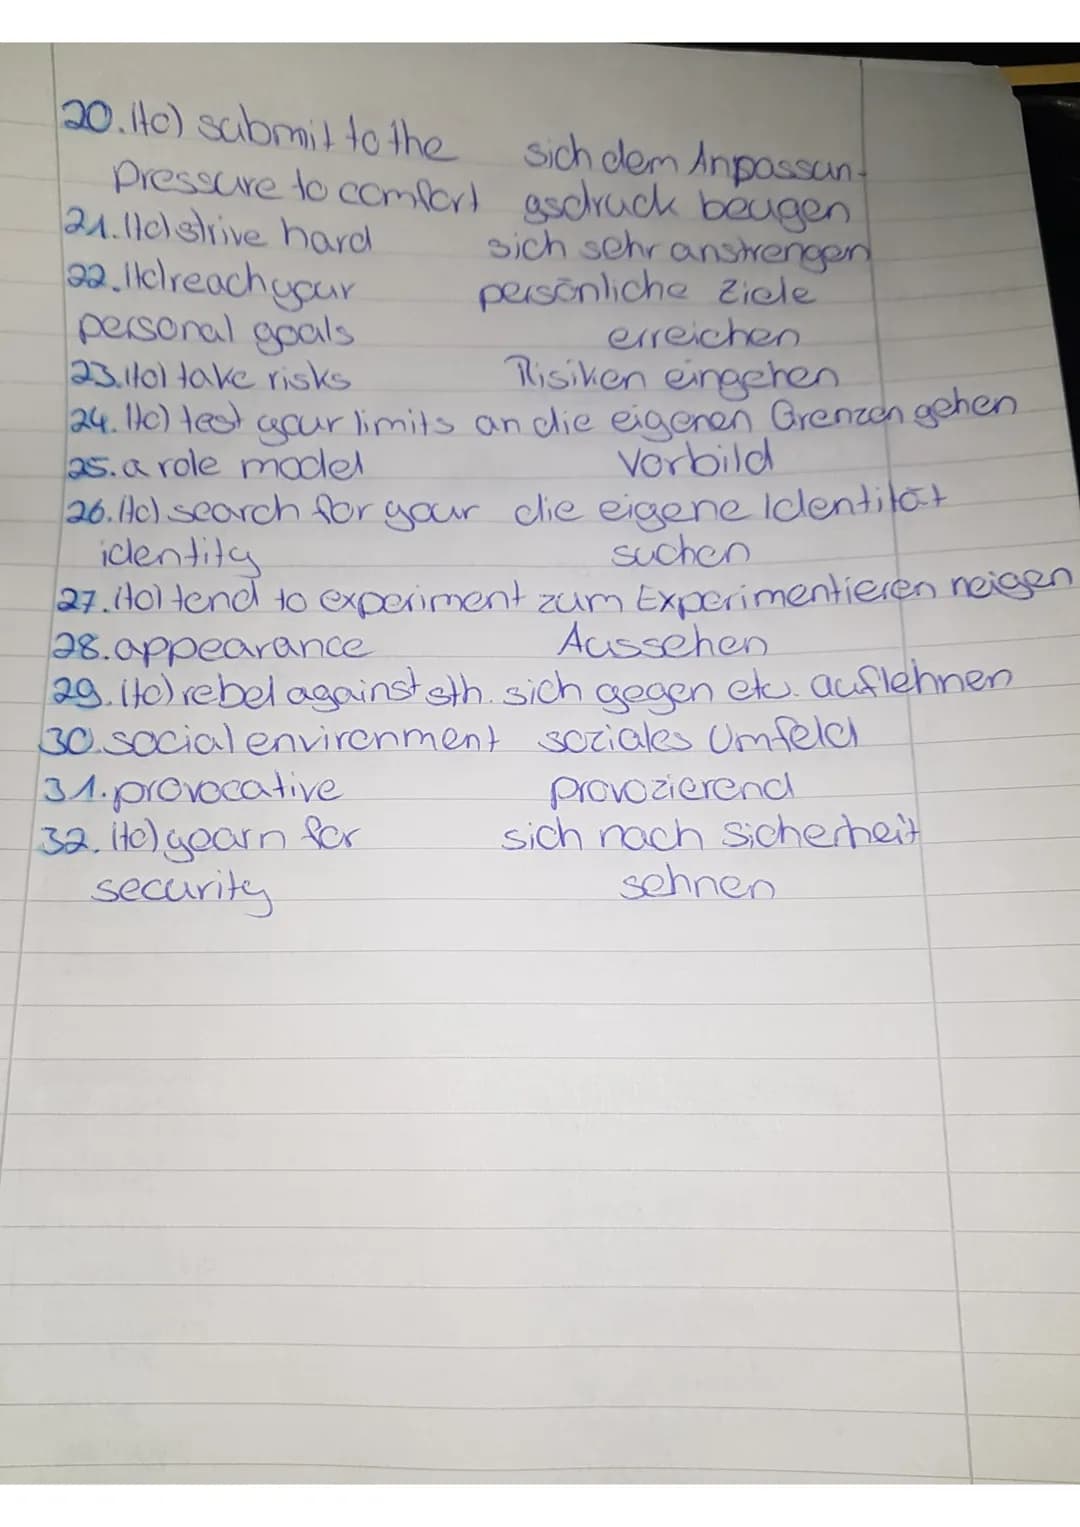 20. (to) submit to the sich dem Anpassun-
pressure to comfort gsdruck beugen
21. (to) strive hard sich sehr anstrengen
22. (to) reach your persönliche Ziele
personal goals erreichen
23. (to) take risks Risiken eingehen
24. (to) test your limits an die eigenen Grenzen gehen
25. a role model Vorbild
26. (to) search for your die eigene Identität
identity suchen
27. (to) tend to experiment zum Experimentieren neigen
28. appearance Aussehen
29. (to) rebel against sth. sich gegen etw. auflehnen
30. social environment soziales Umfeld
31. provocative provozierend
32. (to) yearn for sich nach Sicherheit
security sehnen